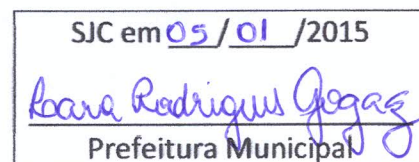 SJC em 05/01/2015
Rodrigues
Prefeitura Municipal